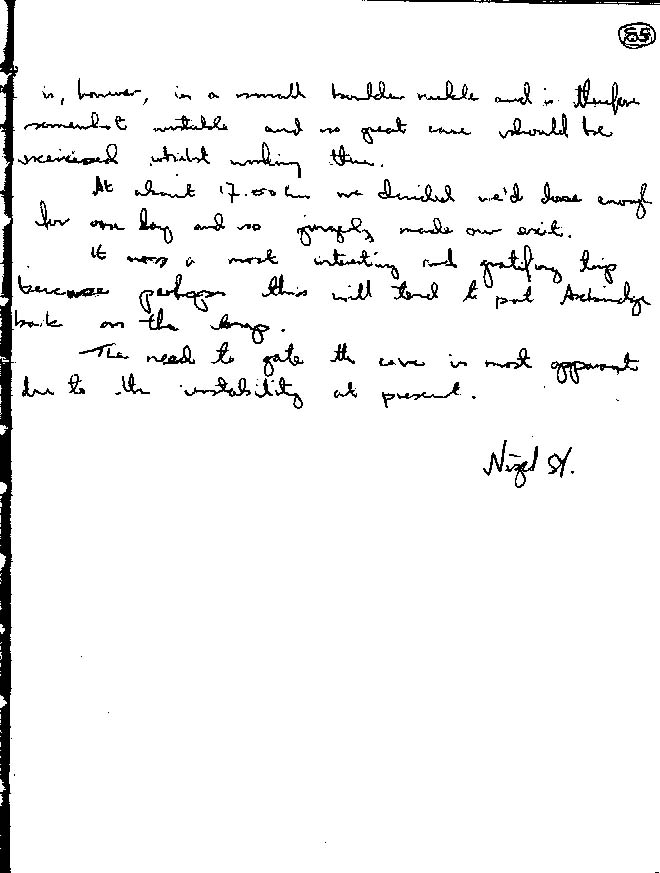 85
is, however, in a small boulder ruckle and is therefore
somewhat unstable and so great care should be
exercised whilst working there.
At about 17.00 hrs we decided we'd done enough
for one day and so made our exit.
It was a most interesting and gratifying trip
because perhaps this will tend to put
back on the map.
The need to gate the cave is most apparent
due to the instability at present.
Nigel